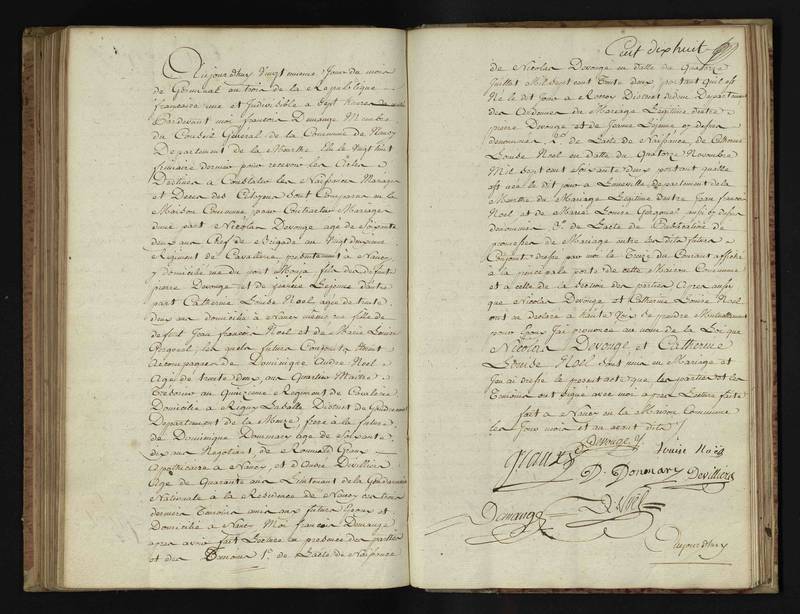 Aujourdhuy Vingt unieme Jour du mois
de Germinal an trois de la Republique
françoise une et Indivisible a sept heures de
Pardevant moi françois Demange Membre
du Conseil Général de la Commune de Nancy
Departement de la Meurthe Elu le Vingt huit
frimaire dernier pour recevoir les Actes
Destinés a Constater les Naissances Mariages
et Deces des Citoyens sont Comparus en la
Maison Commune pour Contracter Mariage
dune part Nicolas Devouge age de soixante
deux ans Chef de Brigade au Vingt deuxieme
Regiment de Cavalerie, presentement a Nancy,
y domicilié rue du pont fils des defunts
pierre Devouge et de Lejeune dautre
part Catherine Louise Noel agée de trente
deux ans domiciliée a Nancy même rue fille de
defunt Jean françois Noel et de Marie Louise
Gergonel, les quels futurs Conjoints étoient
Accompagnés de Dominique André Noel
Agé de trente deux ans Quartier Maitre
Trésorier au Quinzieme Regiment de Cavalerie
Domicilié a Rigny Lasalle District de
Departement de la Meuze, frere a la future
de Dominique Donmary age de soixante
dix ans Negotiant, de Romuald
apothicaire a Nancy, et d'André Devilliers
Age de Quarante ans Lieutenant de la Gendarmerie
Nationale à la Residence de Nancy les trois
derniers Temoins amis aux futurs Epoux et
Domiciliés a Nancy Moi françois Demange
apres avoir fait Lecture en presence des parties
et des Temoins 1º. de Lacte de Naissance
Cent dix huit
de Nicolas Devouge en datte du Quatorze
Juillet Mil Sept cent Trente deux portant quil est
Né le dit Jour a District Departement
des Ardennes de Mariage Legitime dentre
pierre Devouge et de Jeanne Lejeune cy dessus
denommés 2º. de Lacte de Naissance, de Catherine
Louise Noel en datte du Quatorze Novembre
Mil Sept cent soixante deux portant quelle
est née le dit jour à Luneville departement de la
Meurthe de Mariage Legitime dentre Jean françois
Noel et de Marie Louise Gergonel aussi cy dessus
denommés 3º. de Lacte de Publication de
promesses de Mariage entre les dits futurs
Conjoints dressé par moi le Treize du Courant affiché
à la principale porte de cette Maison Commune
et a celle de la Section des parties Apres aussi
que Nicolas Devouge et Catherine Louise Noel
ont eu declaré a haute Voix se prendre Mutuellement
pour Epoux J'ai prononcé au nom de la Loi que
Nicolas Devouge et Catherine
Louise Noël sont unis en Mariage et
J'en ai dressé le present acte que les parties et les
Temoins ont signé avec moi apres Lecture faite
fait a Nancy en la Maison Commune
les Jour mois et an avant dits
Devouge
Louise Noël
D. Donmary Devilliers
Demange D Noël
Aujourdhuy